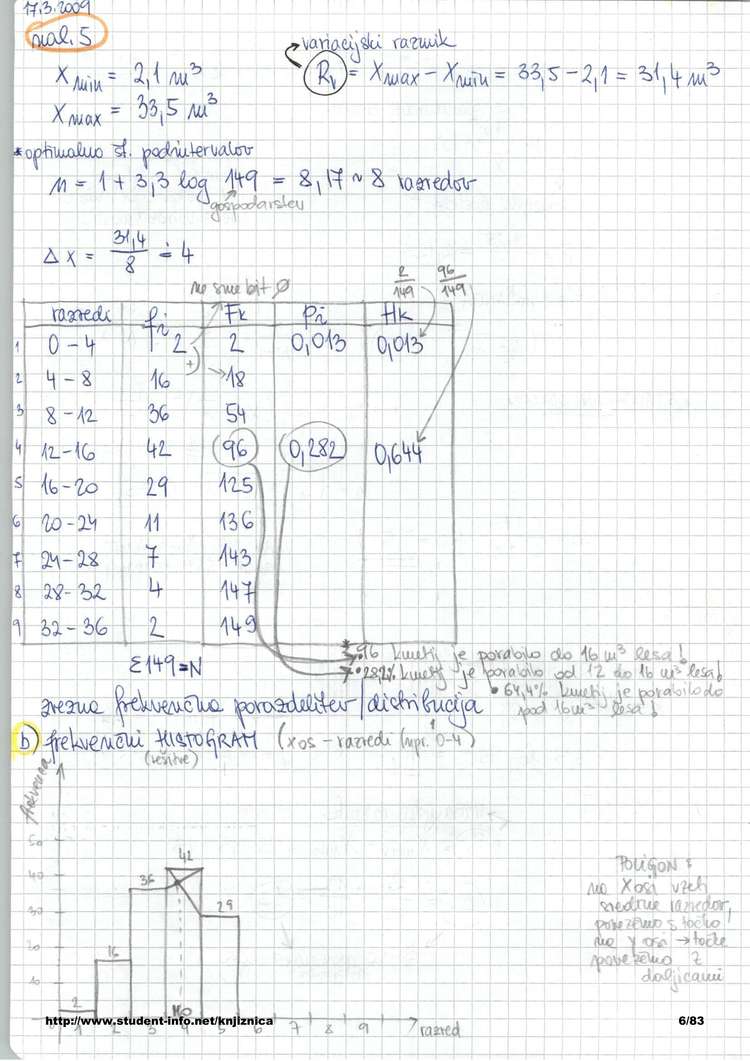 17.3.2009
nal. 5
variacijski razmik
Xmin = 2,1 m³
Rv = Xmax - Xmin = 33,5 - 2,1 = 31,4 m³
Xmax = 33,5 m³
* optimalno št. podintervalov
n = 1 + 3,3 log 149 = 8,17 ~ 8 razredov
gospodarstev
Δx = 31,4/8 ≐ 4
ne sme bit 0
2/149 96/149
razredi fi Fk pi Hk
1 0-4 2 2 0,013 0,013
+
2 4-8 16 18
3 8-12 36 54
4 12-16 42 96 0,282 0,644
5 16-20 29 125
6 20-24 11 136
7 24-28 7 143
8 28-32 4 147
9 32-36 2 149
Σ149=N
96 kmetij je porabilo do 16 m³ lesa!
28,2% kmetij je porabilo od 12 do 16 m³ lesa!
• 64,4% kmetij je porabilo do
pod 16m³ lesa!
zvezna frekvenčna porazdelitev/distribucija
b) frekvenčni HISTOGRAM (xos - razredi (npr. 0-4)
(rešitve)
frekvenca
50
40
30
20
10
0
2
16
36
42
29
MO
1 2 3 4 5 6 7 8 9 razred
POLIGON:
na X osi vzeti
sredine razredov,
povežemo s točko!
na y osi → točke
povežemo z
daljicami
http://www.student-info.net/knjiznica
6/83